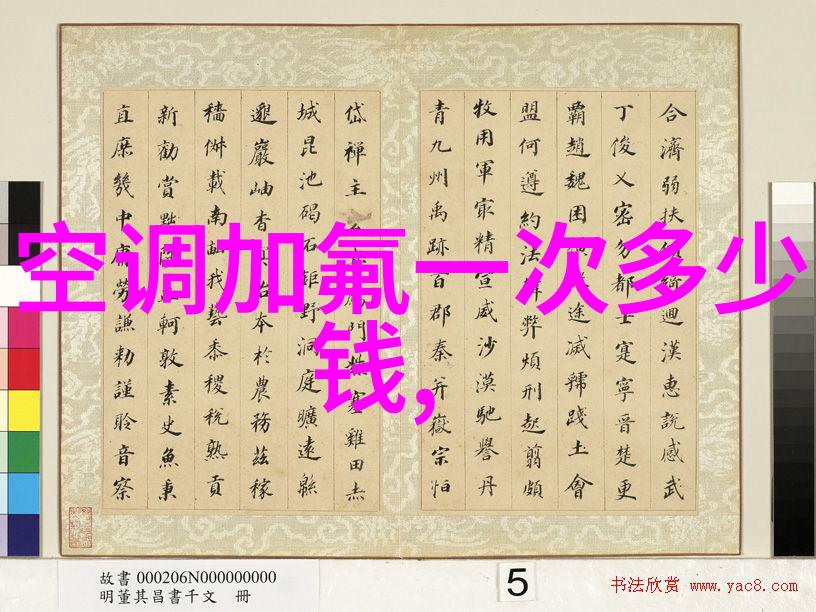 空调加氟一次多少
钱,
合濟弱扶綺迴漢惠說感武
丁俊乂密勿士寔寧晉楚更
霸趙魏困途滅虢踐土會
盟何遵約法弊煩刑起翦頗
牧用軍㝡精宣威沙漠馳譽丹
青九州禹跡百郡秦并嶽宗恒
岱禪主門塞雞田赤
城昆池碣石鉅野洞庭曠遠緜
邈巖岫杳本於農務茲稼
穡俶載南畝我藝黍稷稅熟貢
新勸賞黜軻敦素史魚秉
直庶幾中庸勞謙勅謹聆音察
故書 000206N000000000
明董其昌書千文 冊
5
书法欣赏 www.yac8.com